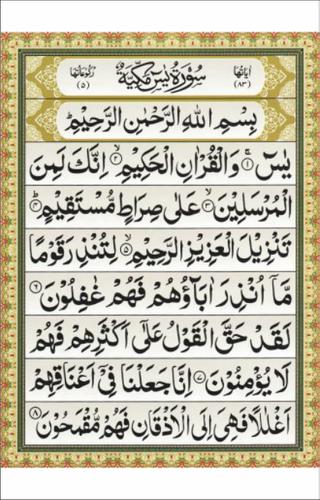 اٰيَاتُهَا (٨٣) سُوْرَةُ يٰسٓ مَكِّيَّةٌ رُكُوْعَاتُهَا (٥)
بِسْمِ اللهِ الرَّحْمٰنِ الرَّحِيْمِ
يٰسٓ ۚ‏﴿١﴾ وَالْقُرْاٰنِ الْحَكِيْمِ ۙ‏﴿٢﴾ اِنَّكَ لَمِنَ
الْمُرْسَلِيْنَ ۙ‏﴿٣﴾ عَلٰى صِرَاطٍ مُّسْتَقِيْمٍ ؕ‏﴿٤﴾
تَنْزِيْلَ الْعَزِيْزِ الرَّحِيْمِ ۙ‏﴿٥﴾ لِتُنْذِرَ قَوْمًا
مَّاۤ اُنْذِرَ اٰبَآؤُهُمْ فَهُمْ غٰفِلُوْنَ ﴿٦﴾
لَقَدْ حَقَّ الْقَوْلُ عَلٰٓى اَكْثَرِهِمْ فَهُمْ
لَا يُؤْمِنُوْنَ ﴿٧﴾ اِنَّا جَعَلْنَا فِيْٓ اَعْنَاقِهِمْ
اَغْلٰلًا فَهِيَ اِلَى الْاَذْقَانِ فَهُمْ مُّقْمَحُوْنَ ﴿٨﴾